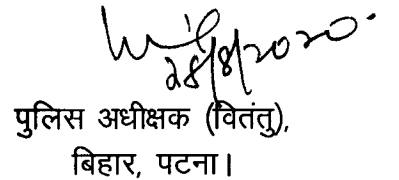 28/8/2020.
पुलिस अधीक्षक (वितंतु),
बिहार, पटना।